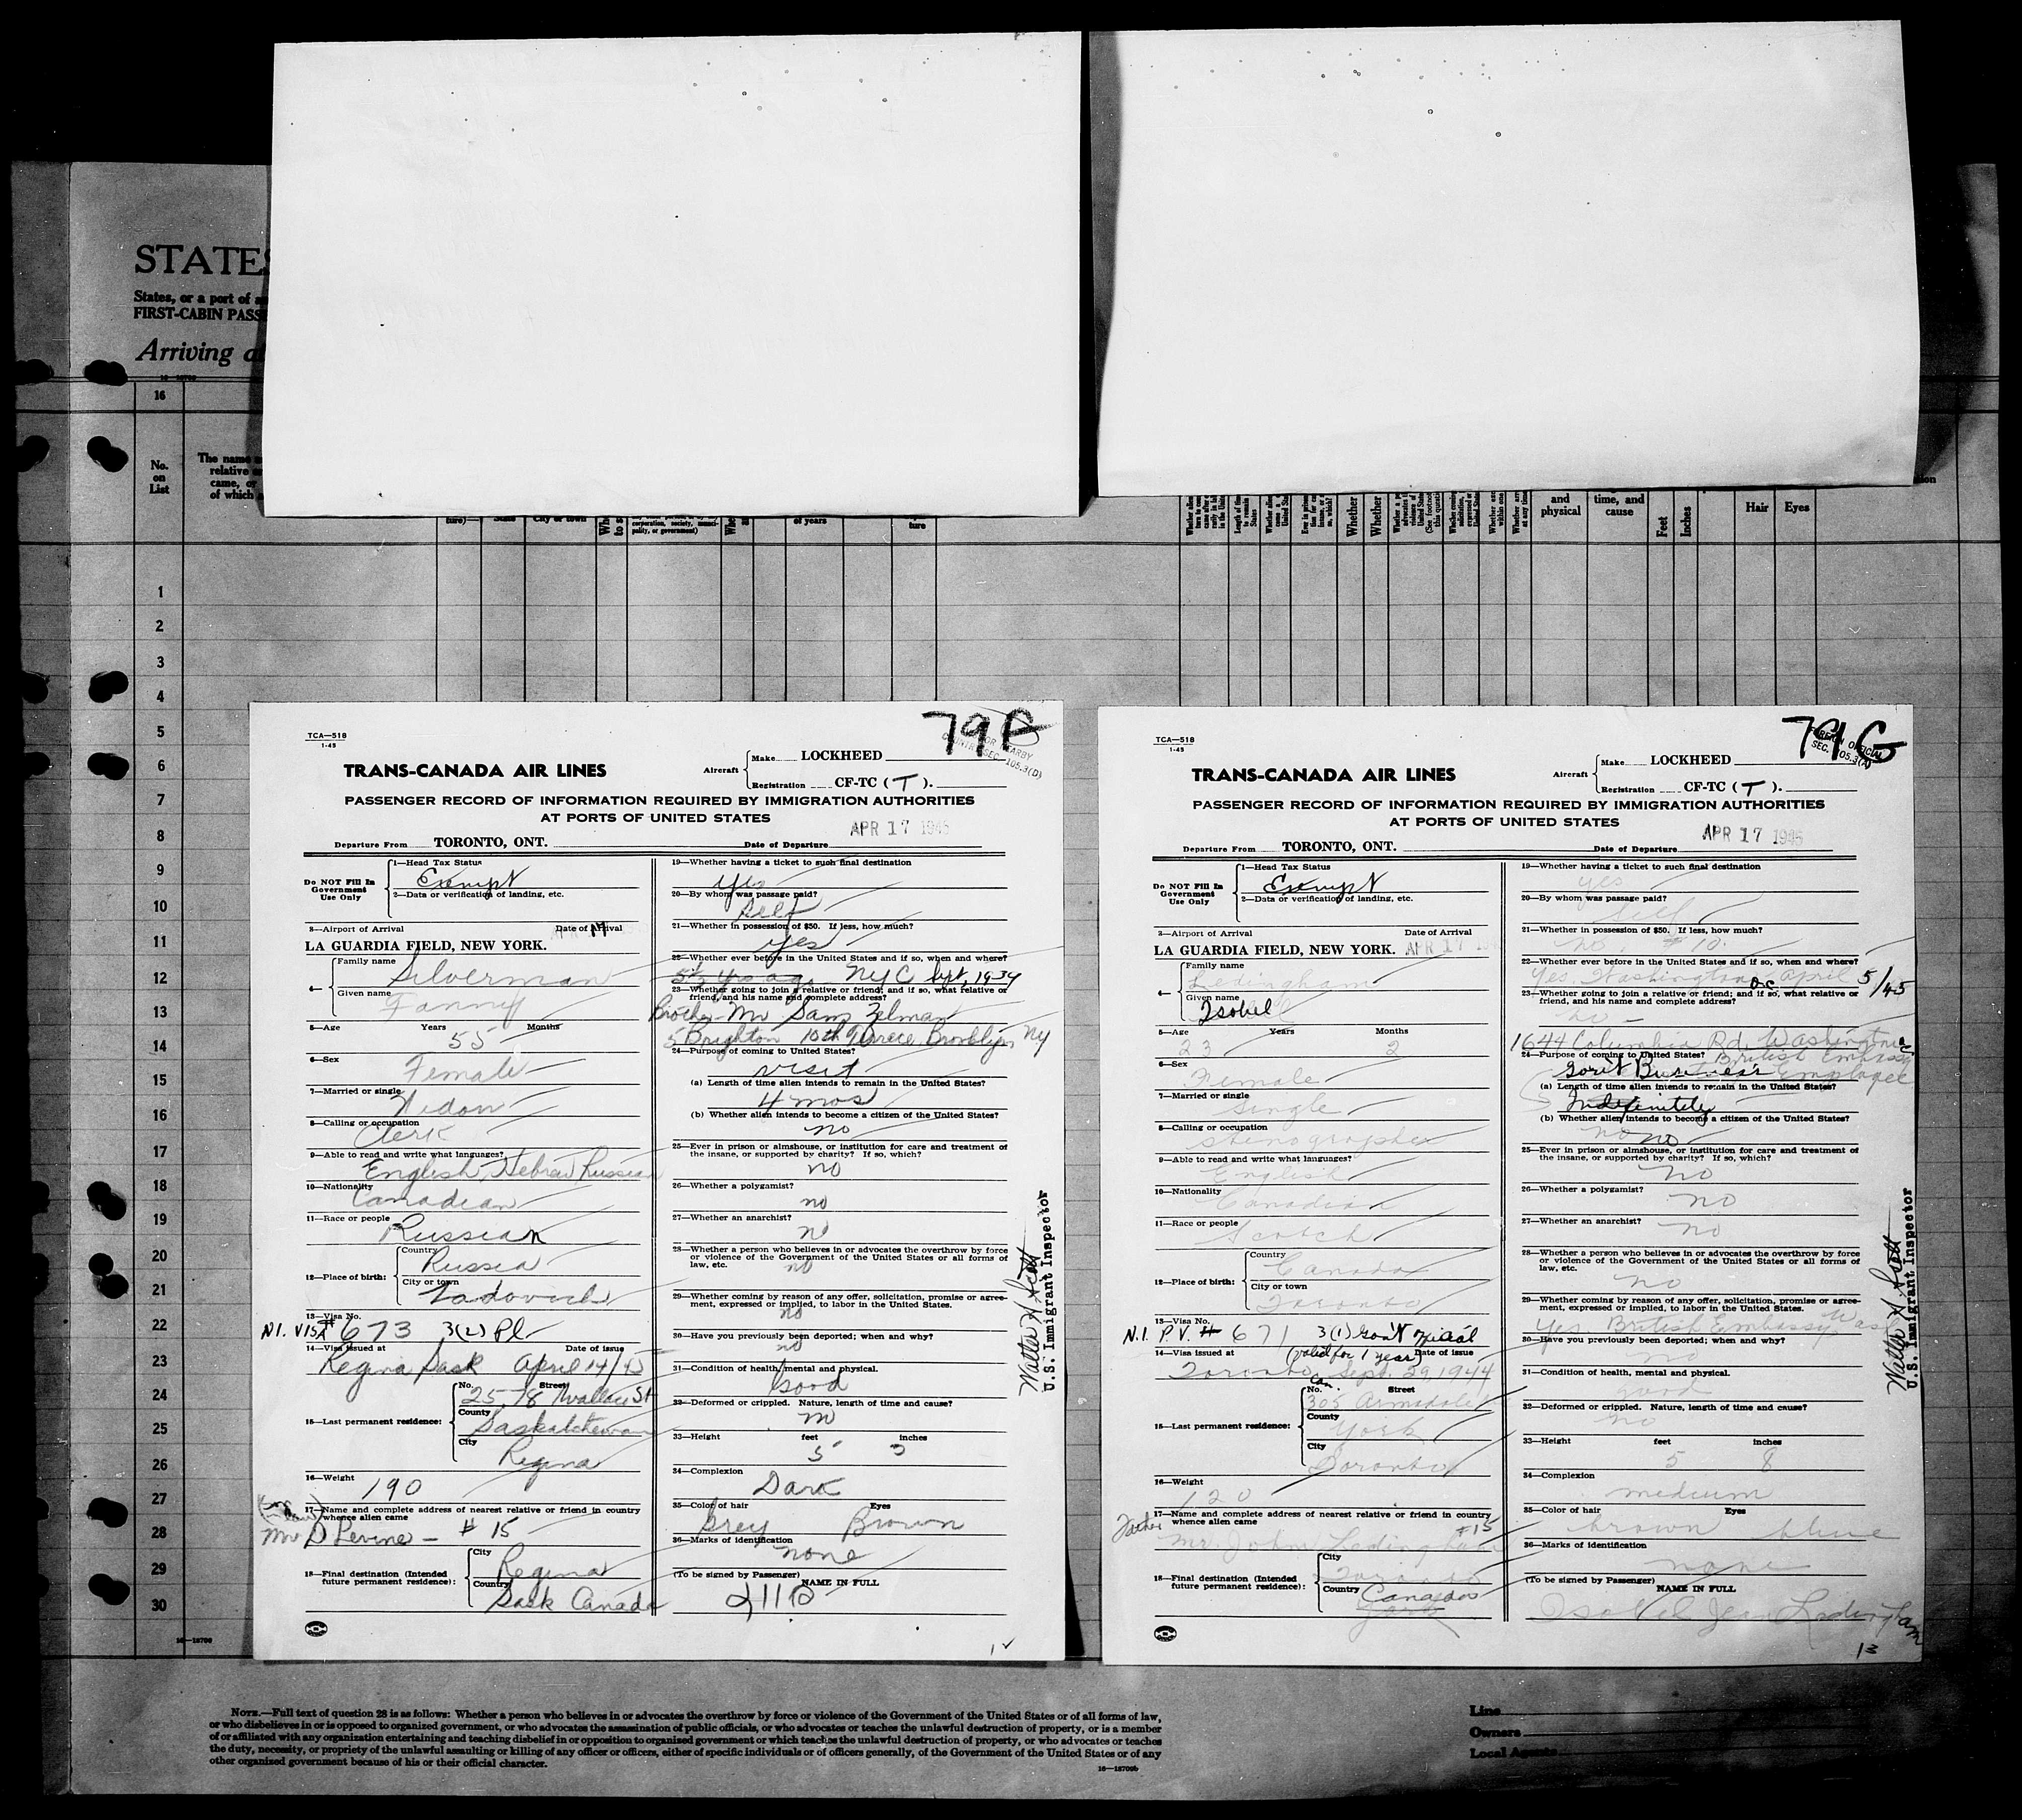 STATES
States, or a port of
FIRST-CABIN PASS
Arriving
16
No.
on
List
The name
relative
came, or
of which
ture)—
State
City or town
corporation, society, munici-
pality, or government)
of years
ture
and
physical
time, and
cause
Feet
Inches
Hair
Eyes
1
2
3
4
5
6
7
8
9
10
11
12
13
14
15
16
17
18
19
20
21
22
23
24
25
26
27
28
29
30
TCA—518
1-45
79
TRANS-CANADA AIR LINES
Aircraft
Make LOCKHEED
Registration CF-TC (T).
PASSENGER RECORD OF INFORMATION REQUIRED BY IMMIGRATION AUTHORITIES
AT PORTS OF UNITED STATES
APR 17 1945
Departure From TORONTO, ONT. Date of Departure
Do NOT Fill In
Government
Use Only
1—Head Tax Status
Exempt
2—Data or verification of landing, etc.
3—Airport of Arrival Date of Arrival
LA GUARDIA FIELD, NEW YORK.
4—
Family name
Silverman
Given name
Fanny
5—Age Years Months
55
6—Sex
Female
7—Married or single
Widow
8—Calling or occupation
Clerk
9—Able to read and write what languages?
English, Hebrew Russian
10—Nationality
Canadian
11—Race or people
Russian
12—Place of birth:
Country
Russia
City or town
13—Visa No.
N.I. VISA # 673 3(2) Pl
14—Visa issued at Date of issue
Regina Sask April 14/45
15—Last permanent residence:
No. Street
2578 Wallace St
County
Saskatchewan
City
Regina
16—Weight
190
17—Name and complete address of nearest relative or friend in country
whence alien came
Mr D Levine — # 15
18—Final destination (Intended
future permanent residence):
City
Regina
Country
Sask Canada
19—Whether having a ticket to such final destination
yes
20—By whom was passage paid?
Self
21—Whether in possession of $50. If less, how much?
yes
22—Whether ever before in United States and if so, when and where?
5½ yrs ago NYC Sept, 1934
23—Whether going to join a relative or friend; and if so, what relative or
friend, and his name and complete address?
Brother—Mr Sam Zelman
5 Brighton 10th Terrace Brooklyn NY
24—Purpose of coming to United States?
visit
(a) Length of time alien intends to remain in the United States?
4 mos
(b) Whether alien intends to become a citizen of the United States?
no
25—Ever in prison or almshouse, or institution for care and treatment of
the insane, or supported by charity? If so, which?
no
26—Whether a polygamist?
no
27—Whether an anarchist?
no
28—Whether a person who believes in or advocates the overthrow by force
or violence of the Government of the United States or all forms of
law, etc.
no
29—Whether coming by reason of any offer, solicitation, promise or agree-
ment, expressed or implied, to labor in the United States.
no
30—Have you previously been deported; when and why?
no
31—Condition of health, mental and physical.
Good
32—Deformed or crippled. Nature, length of time and cause?
no
33—Height feet inches
5
34—Complexion
Dark
35—Color of hair Eyes
Grey Brown
36—Marks of identification
none
(To be signed by Passenger) NAME IN FULL
Walter H Scott
U.S. Immigrant Inspector
TCA—518
1-45
79 G
FOREIGN OFFICIAL
TRANS-CANADA AIR LINES
Aircraft
Make LOCKHEED
Registration CF-TC (T).
PASSENGER RECORD OF INFORMATION REQUIRED BY IMMIGRATION AUTHORITIES
AT PORTS OF UNITED STATES
APR 17 1945
Departure From TORONTO, ONT. Date of Departure
Do NOT Fill In
Government
Use Only
1—Head Tax Status
Exempt
2—Data or verification of landing, etc.
3—Airport of Arrival Date of Arrival
LA GUARDIA FIELD, NEW YORK. APR 17
4—
Family name
Ledingham
Given name
Isobel
5—Age Years Months
23 2
6—Sex
Female
7—Married or single
Single
8—Calling or occupation
Stenographer
9—Able to read and write what languages?
English
10—Nationality
Canadian
11—Race or people
Scotch
12—Place of birth:
Country
Canada
City or town
Toronto
13—Visa No.
N.I. P.V. # 671 3(1) Gov't Official
(valid for 1 year)
14—Visa issued at Date of issue
Toronto Can. Sept. 29, 1944
15—Last permanent residence:
No. Street
305 Armadale
County
York
City
Toronto
16—Weight
120
17—Name and complete address of nearest relative or friend in country
whence alien came
Father #15
Mr. John Ledingham
18—Final destination (Intended
future permanent residence):
City
Toronto
Country
Canada
York
19—Whether having a ticket to such final destination
yes
20—By whom was passage paid?
Self
21—Whether in possession of $50. If less, how much?
no. $10.
22—Whether ever before in United States and if so, when and where?
Yes Washington D.C. April 5/45
23—Whether going to join a relative or friend; and if so, what relative or
friend, and his name and complete address?
no —
1644 Columbia Rd. Washington
24—Purpose of coming to United States? British Embassy
Gov't Business Employee
(a) Length of time alien intends to remain in the United States?
Indefinitely
(b) Whether alien intends to become a citizen of the United States?
no no
25—Ever in prison or almshouse, or institution for care and treatment of
the insane, or supported by charity? If so, which?
no
26—Whether a polygamist?
no
27—Whether an anarchist?
no
28—Whether a person who believes in or advocates the overthrow by force
or violence of the Government of the United States or all forms of
law, etc.
no
29—Whether coming by reason of any offer, solicitation, promise or agree-
ment, expressed or implied, to labor in the United States.
Yes British Embassy, Wash
30—Have you previously been deported; when and why?
no
31—Condition of health, mental and physical.
good
32—Deformed or crippled. Nature, length of time and cause?
no
33—Height feet inches
5 8
34—Complexion
medium
35—Color of hair Eyes
brown blue
36—Marks of identification
none
(To be signed by Passenger) NAME IN FULL
Isobel Jean Ledingham
13
Walter H Scott
U.S. Immigrant Inspector
16—18700
NOTE.—Full text of question 28 is as follows: Whether a person who believes in or advocates the overthrow by force or violence of the Government of the United States or of all forms of law,
or who disbelieves in or is opposed to organized government, or who advocates the assassination of public officials, or who advocates or teaches the unlawful destruction of property, or is a member
of or affiliated with any organization entertaining and teaching disbelief in or opposition to organized government or which teaches the unlawful destruction of property, or who advocates or teaches
the duty, necessity, or propriety of the unlawful assaulting or killing of any officer or officers, either of specific individuals or of officers generally, of the Government of the United States or of any
other organized government because of his or their official character.
16—18700b
Line
Owners
Local Agents